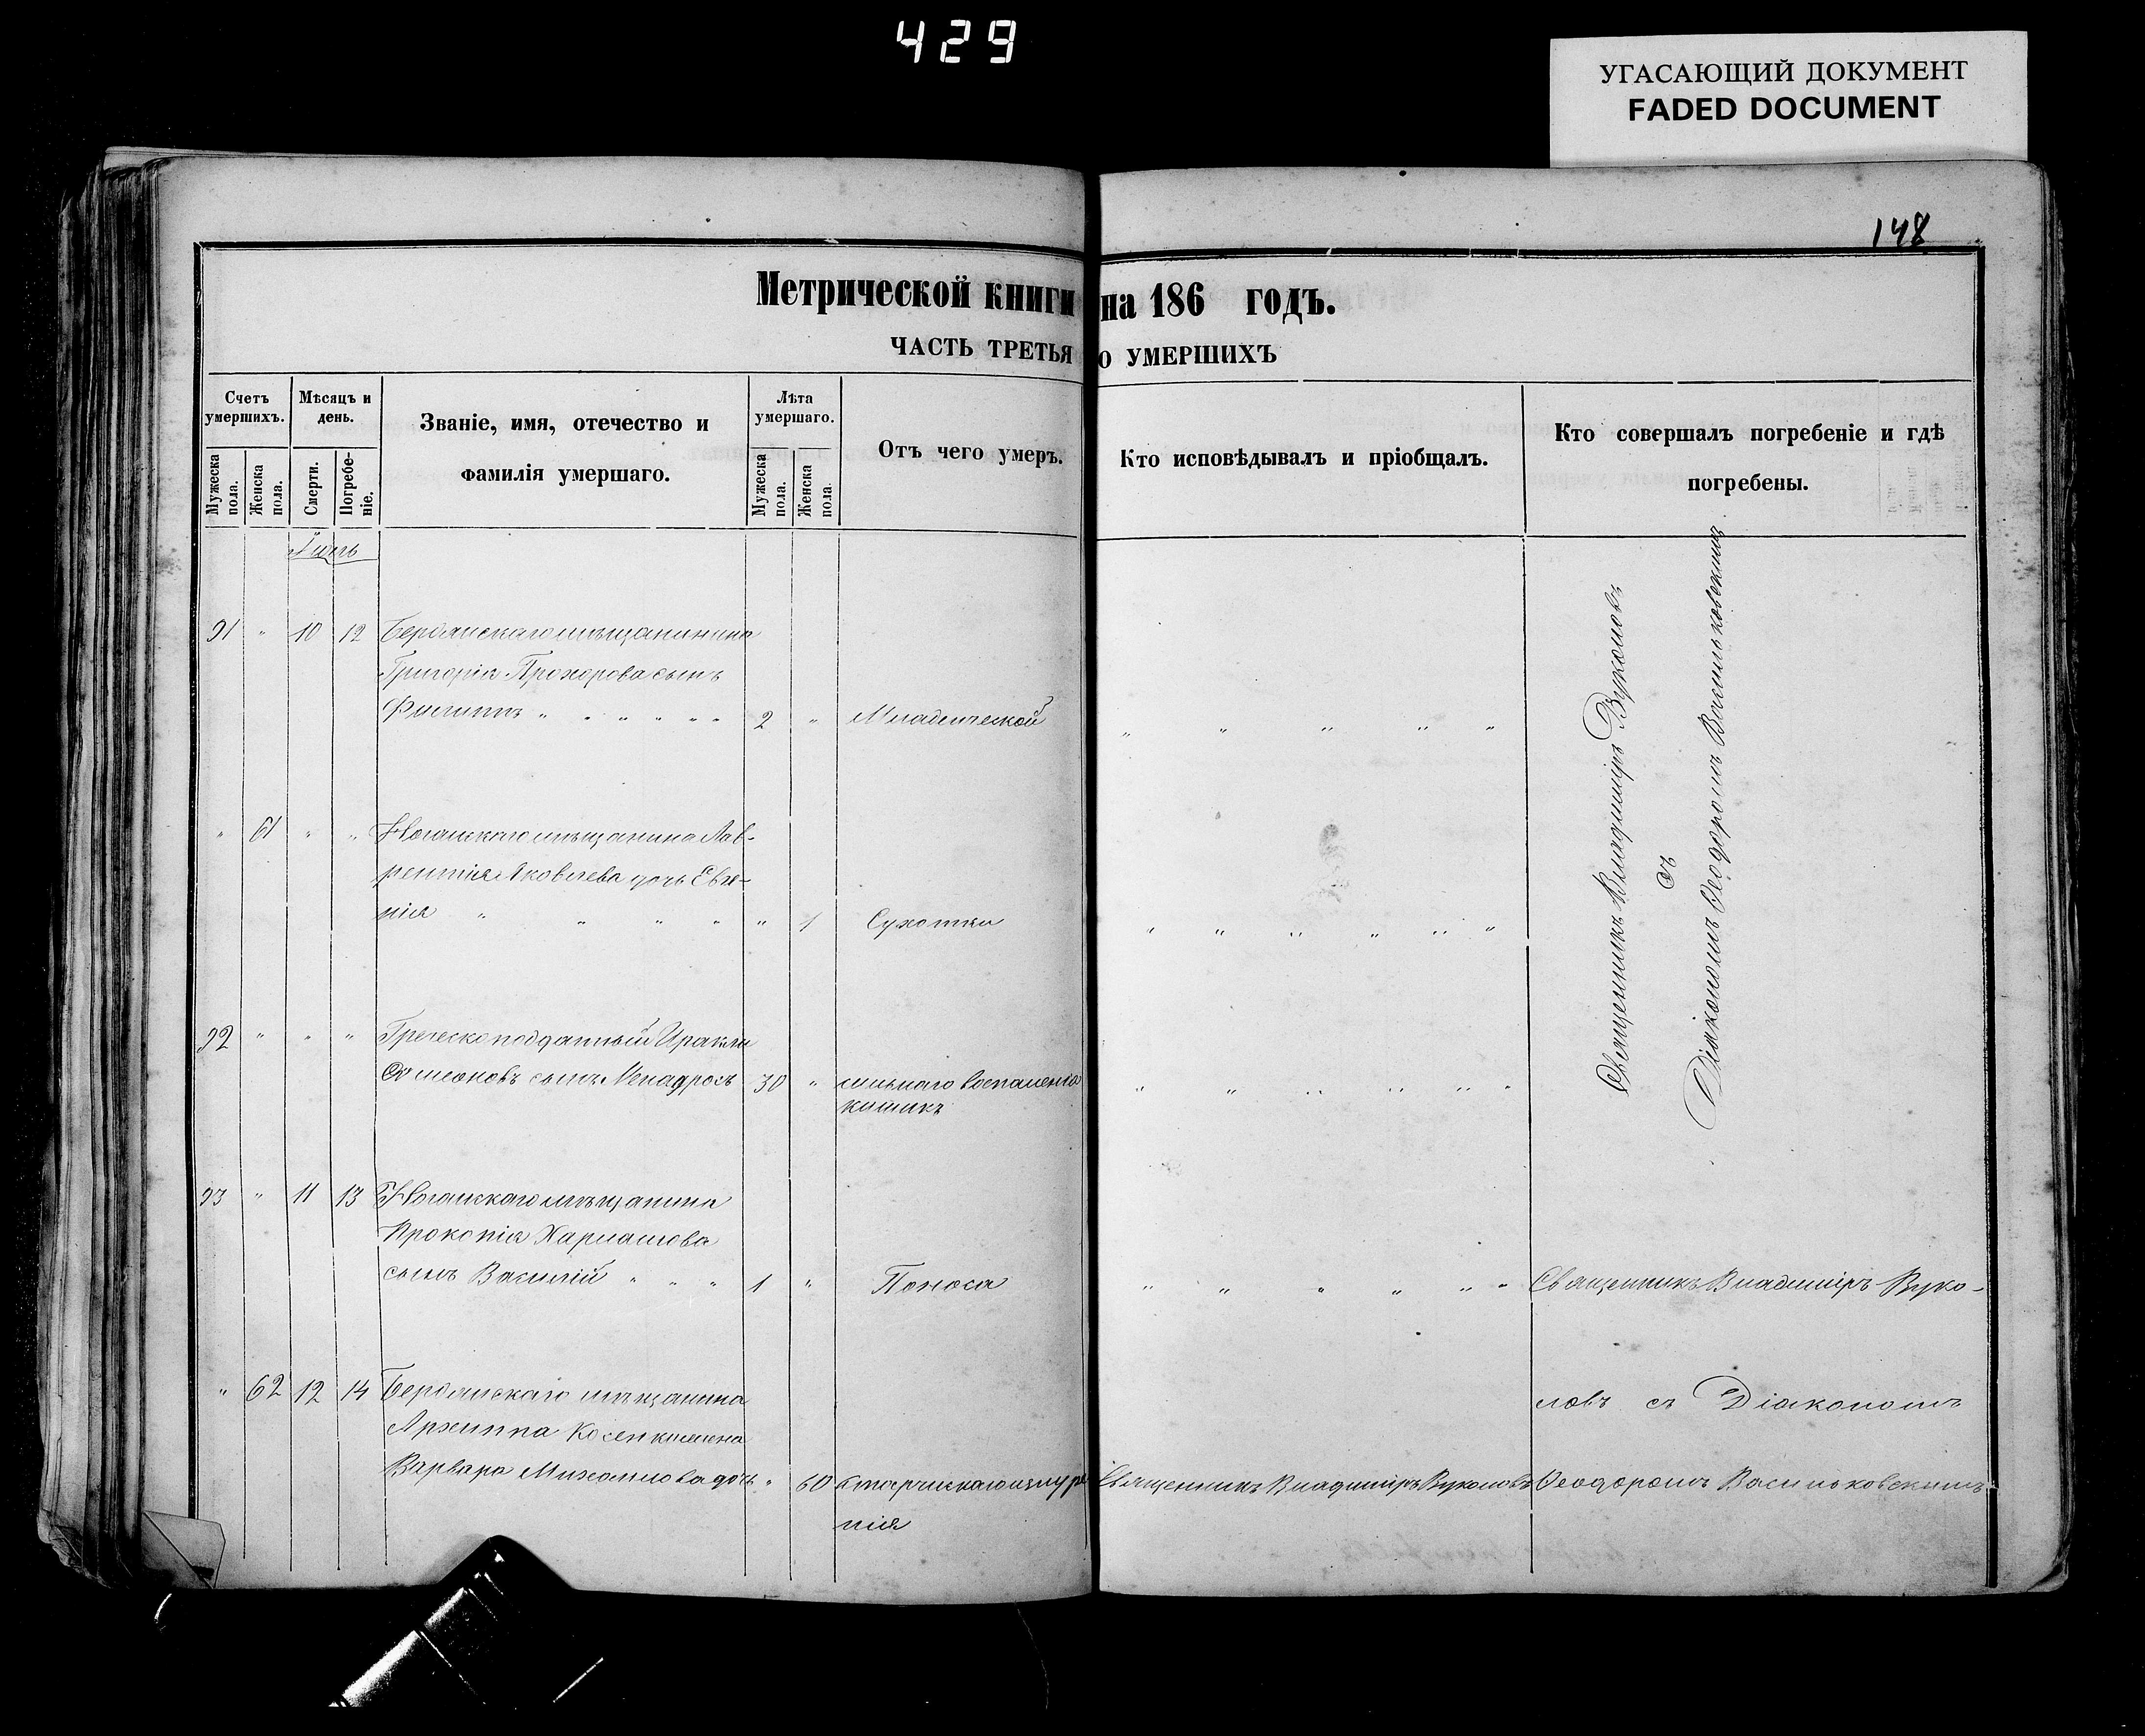 429
УГАСАЮЩИЙ ДОКУМЕНТ
FADED DOCUMENT
148
Метрической книги на 186 годъ.
ЧАСТЬ ТРЕТЬЯ о УМЕРШИХЪ
Счетъ умершихъ.
Мѣсяцъ и день.
Званіе, имя, отечество и фамилія умершаго.
Лѣта умершаго.
Отъ чего умеръ.
Кто исповѣдывалъ и пріобщалъ.
Кто совершалъ погребеніе и гдѣ погребены.
Мужеска пола.
Женска пола.
Смерти.
Погребеніе.
Мужеска пола.
Женска пола.
91 " 10 12 Бердянскаго мѣщанина
Григорія Прохорова сынъ
Филиппъ " " " " " " 2 " Младенческой " " " " "
" 61 " " Ногайскаго мѣщанина Лав-
рентія Яковлева дочь Евге-
нія " " " " " 1 Сухотки " " " " " "
92 " " " Греческоподданный Иракли
Симеоновъ сынъ 30 " сильнаго воспаленія " " " " " "
кишекъ
Священникъ Владиміръ Вуколовъ
съ
Діакономъ Ѳеодоромъ Васильковскимъ
93 " 11 13 Ногайскаго мѣщанина
Прокопія
сынъ Василій " " " 1 " Поноса " " " " " " Священникъ Владиміръ Вуко-
" 62 12 14 Бердянскаго мѣщанина ловъ съ Діакономъ
Архиппа жена
Варвара Михаилова дочь " 60 Священникъ Владиміръ Вуколовъ Ѳеодоромъ Васильковскимъ
нія